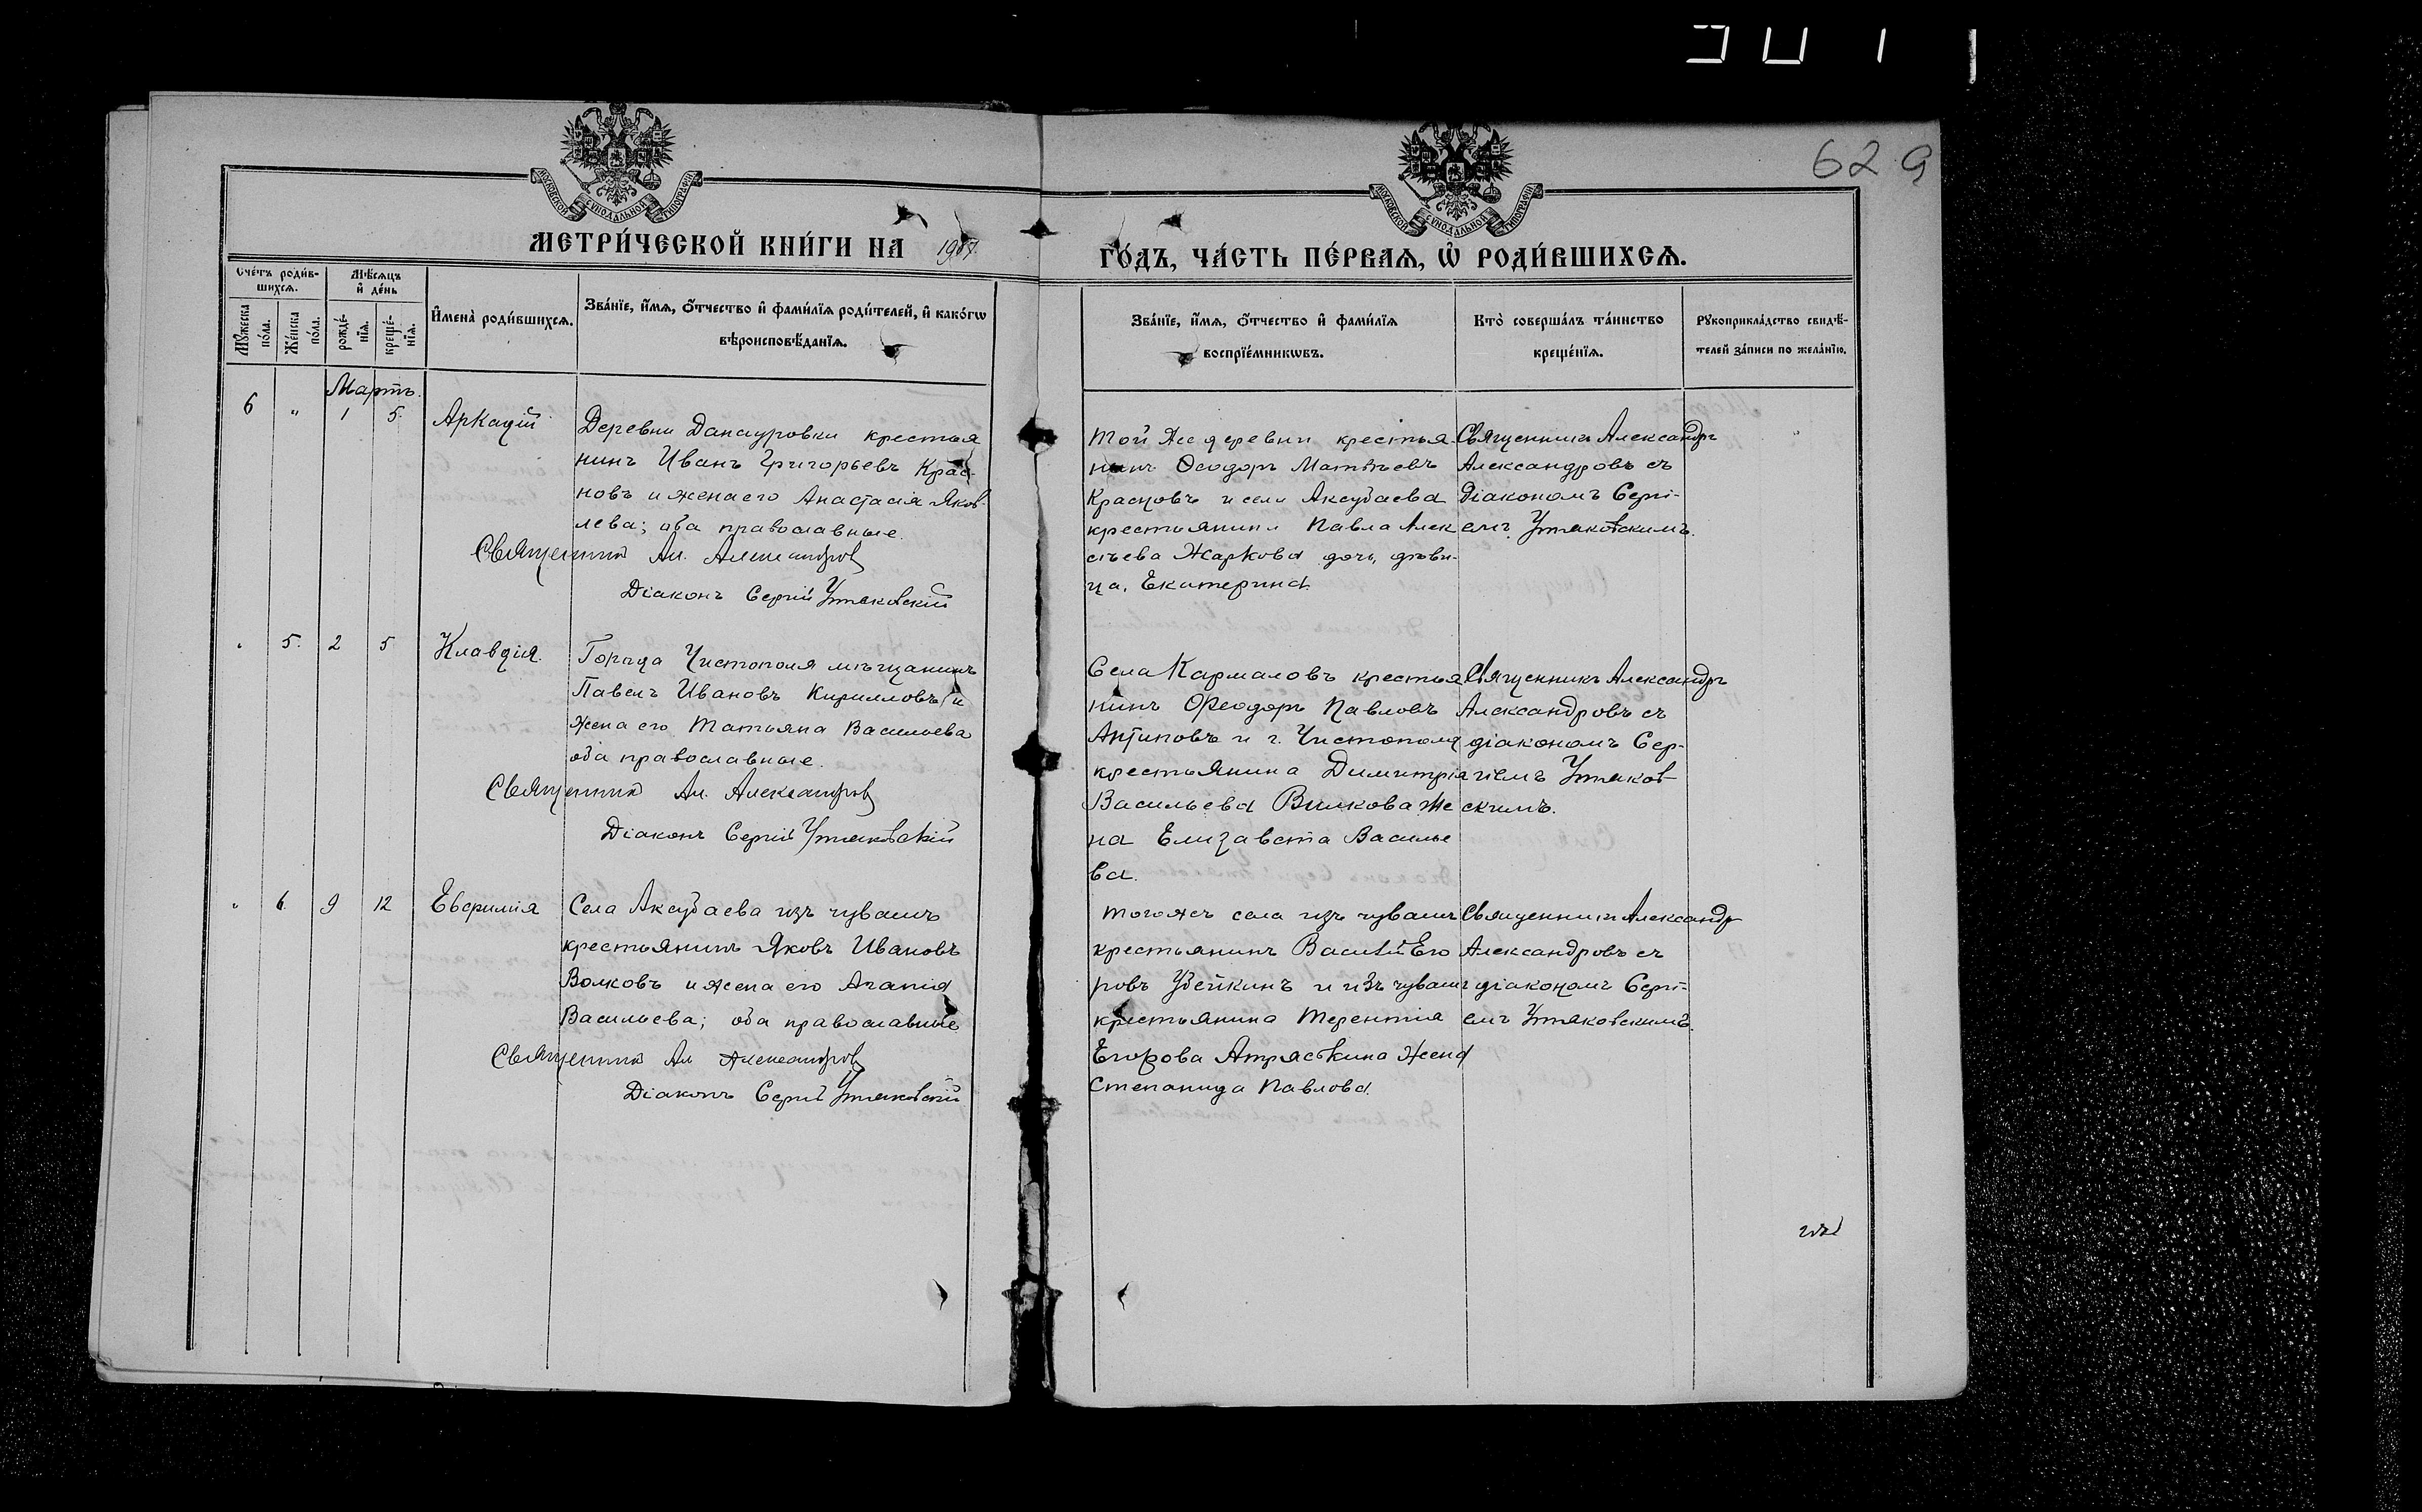 629
МОСКОВСКОЙ СУНОДАЛЬНОЙ ТИПОГРАФІИ
МОСКОВСКОЙ СУНОДАЛЬНОЙ ТИПОГРАФІИ
МЕТРИ́ЧЕСКОЙ КНИ́ГИ НА 1907
ГО́ДЪ, ЧА́СТЬ ПЕ́РВАѦ, Ѽ РОДИ́ВШИХСѦ.
Сче́тъ роди́в-
шихсѧ.
Мꙋ́жеска по́ла.
Же́нска по́ла.
Мѣ́сѧцъ и҆ де́нь
рожде́-нїѧ.
креще́-нїѧ.
И҆мена̀ роди́вшихсѧ.
Зва́нїе, и҆́мѧ, ѻ҆́тчество и҆ фами́лїѧ роди́телей, и҆ како́гѡ
вѣроисповѣ́данїѧ.
Зва́нїе, и҆́мѧ, ѻ҆́тчество и҆ фами́лїѧ
воспрїе́мникѡвъ.
Кто̀ соверша́лъ та́инство
креще́нїѧ.
Рꙋкоприкла́дство свидѣ́-
телей за́писи по жела́нїю.
Мартъ.
6 " 1 5.
Аркадій
Деревни Данауровки крестья
нинъ Иванъ Григорьевъ Крас-
новъ и жена его Анастасія Яков-
лева; оба православные.
Священникъ Ал. Александровъ
Діаконъ Сергій Утяковскій
Той же деревни крестья-
нинъ Ѳеодоръ Матвѣевъ
Красновъ и села Аксубаева
крестьянина Павла Алек
сѣева Жаркова дочь, дѣви-
ца, Екатерина.
Священникъ Александръ
Александровъ съ
діакономъ Сергі-
емъ Утяковскимъ.
" 5. 2 5
Клавдія.
Города Чистополя мѣщанинъ
Павелъ Ивановъ Кирилловъ и
жена его Татьяна Васильева
оба православные.
Священникъ Ал. Александровъ
Діаконъ Сергій Утяковскій
Села Кармаловъ крестья
нинъ Ѳеодоръ Павловъ
Антиповъ и г. Чистополя
крестьянина Димитрія
Васильева Вилкова же
на Елизавета Василье
ва.
Священникъ Александръ
Александровъ съ
діакономъ Сер-
гіемъ Утяков
скимъ.
" 6 9 12
Евфимія
Села Аксубаева изъ чувашъ
крестьянинъ Яковъ Ивановъ
Волковъ и жена его Агапія
Васильева; оба православные
Священникъ Ал Александровъ
Діаконъ Сергій Утяковскій
Того же села изъ чувашъ
крестьянинъ Василій Его
ровъ Убейкинъ и изъ чувашъ
крестьянина Терентія
Егорова Атряскина жена
Степанида Павлова.
Священникъ Александръ
Александровъ съ
діакономъ Сергі-
емъ Утяковскимъ.